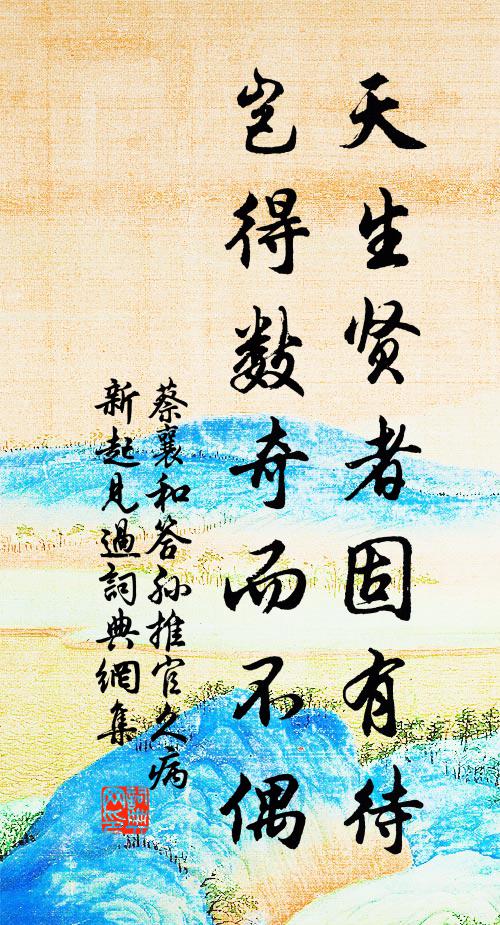 天生贤者固有待
岂得数奇而不偶
蔡襄和答孙推官久病
新起见过詞典網集